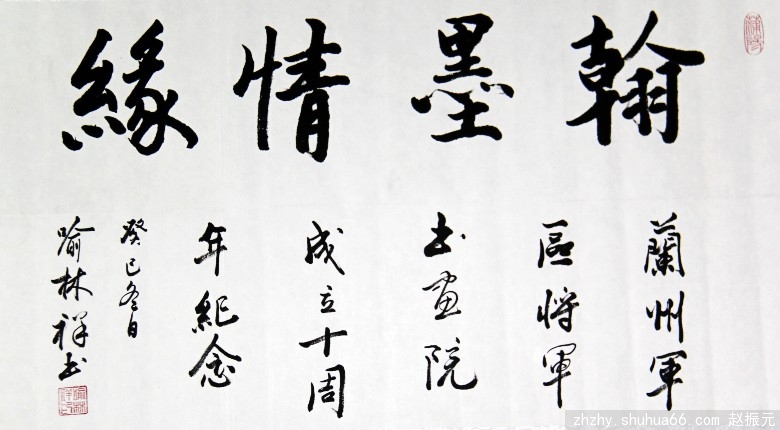 翰墨情緣
蘭州軍
區將軍
书畫院
成立十周
年紀念
癸巳冬日
喻林祥书
zhzhy.shuhua66.com 赵振元